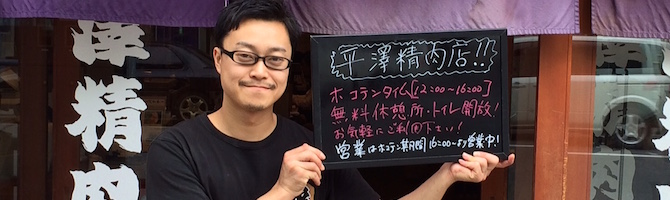 澤精肉
平澤精肉店!!
ホコテンタイム[12:00〜16:00]
無料休憩所・トイレ開放!
お気軽にご利用下さい!
営業はホコテン期間16:00〜より営業中!